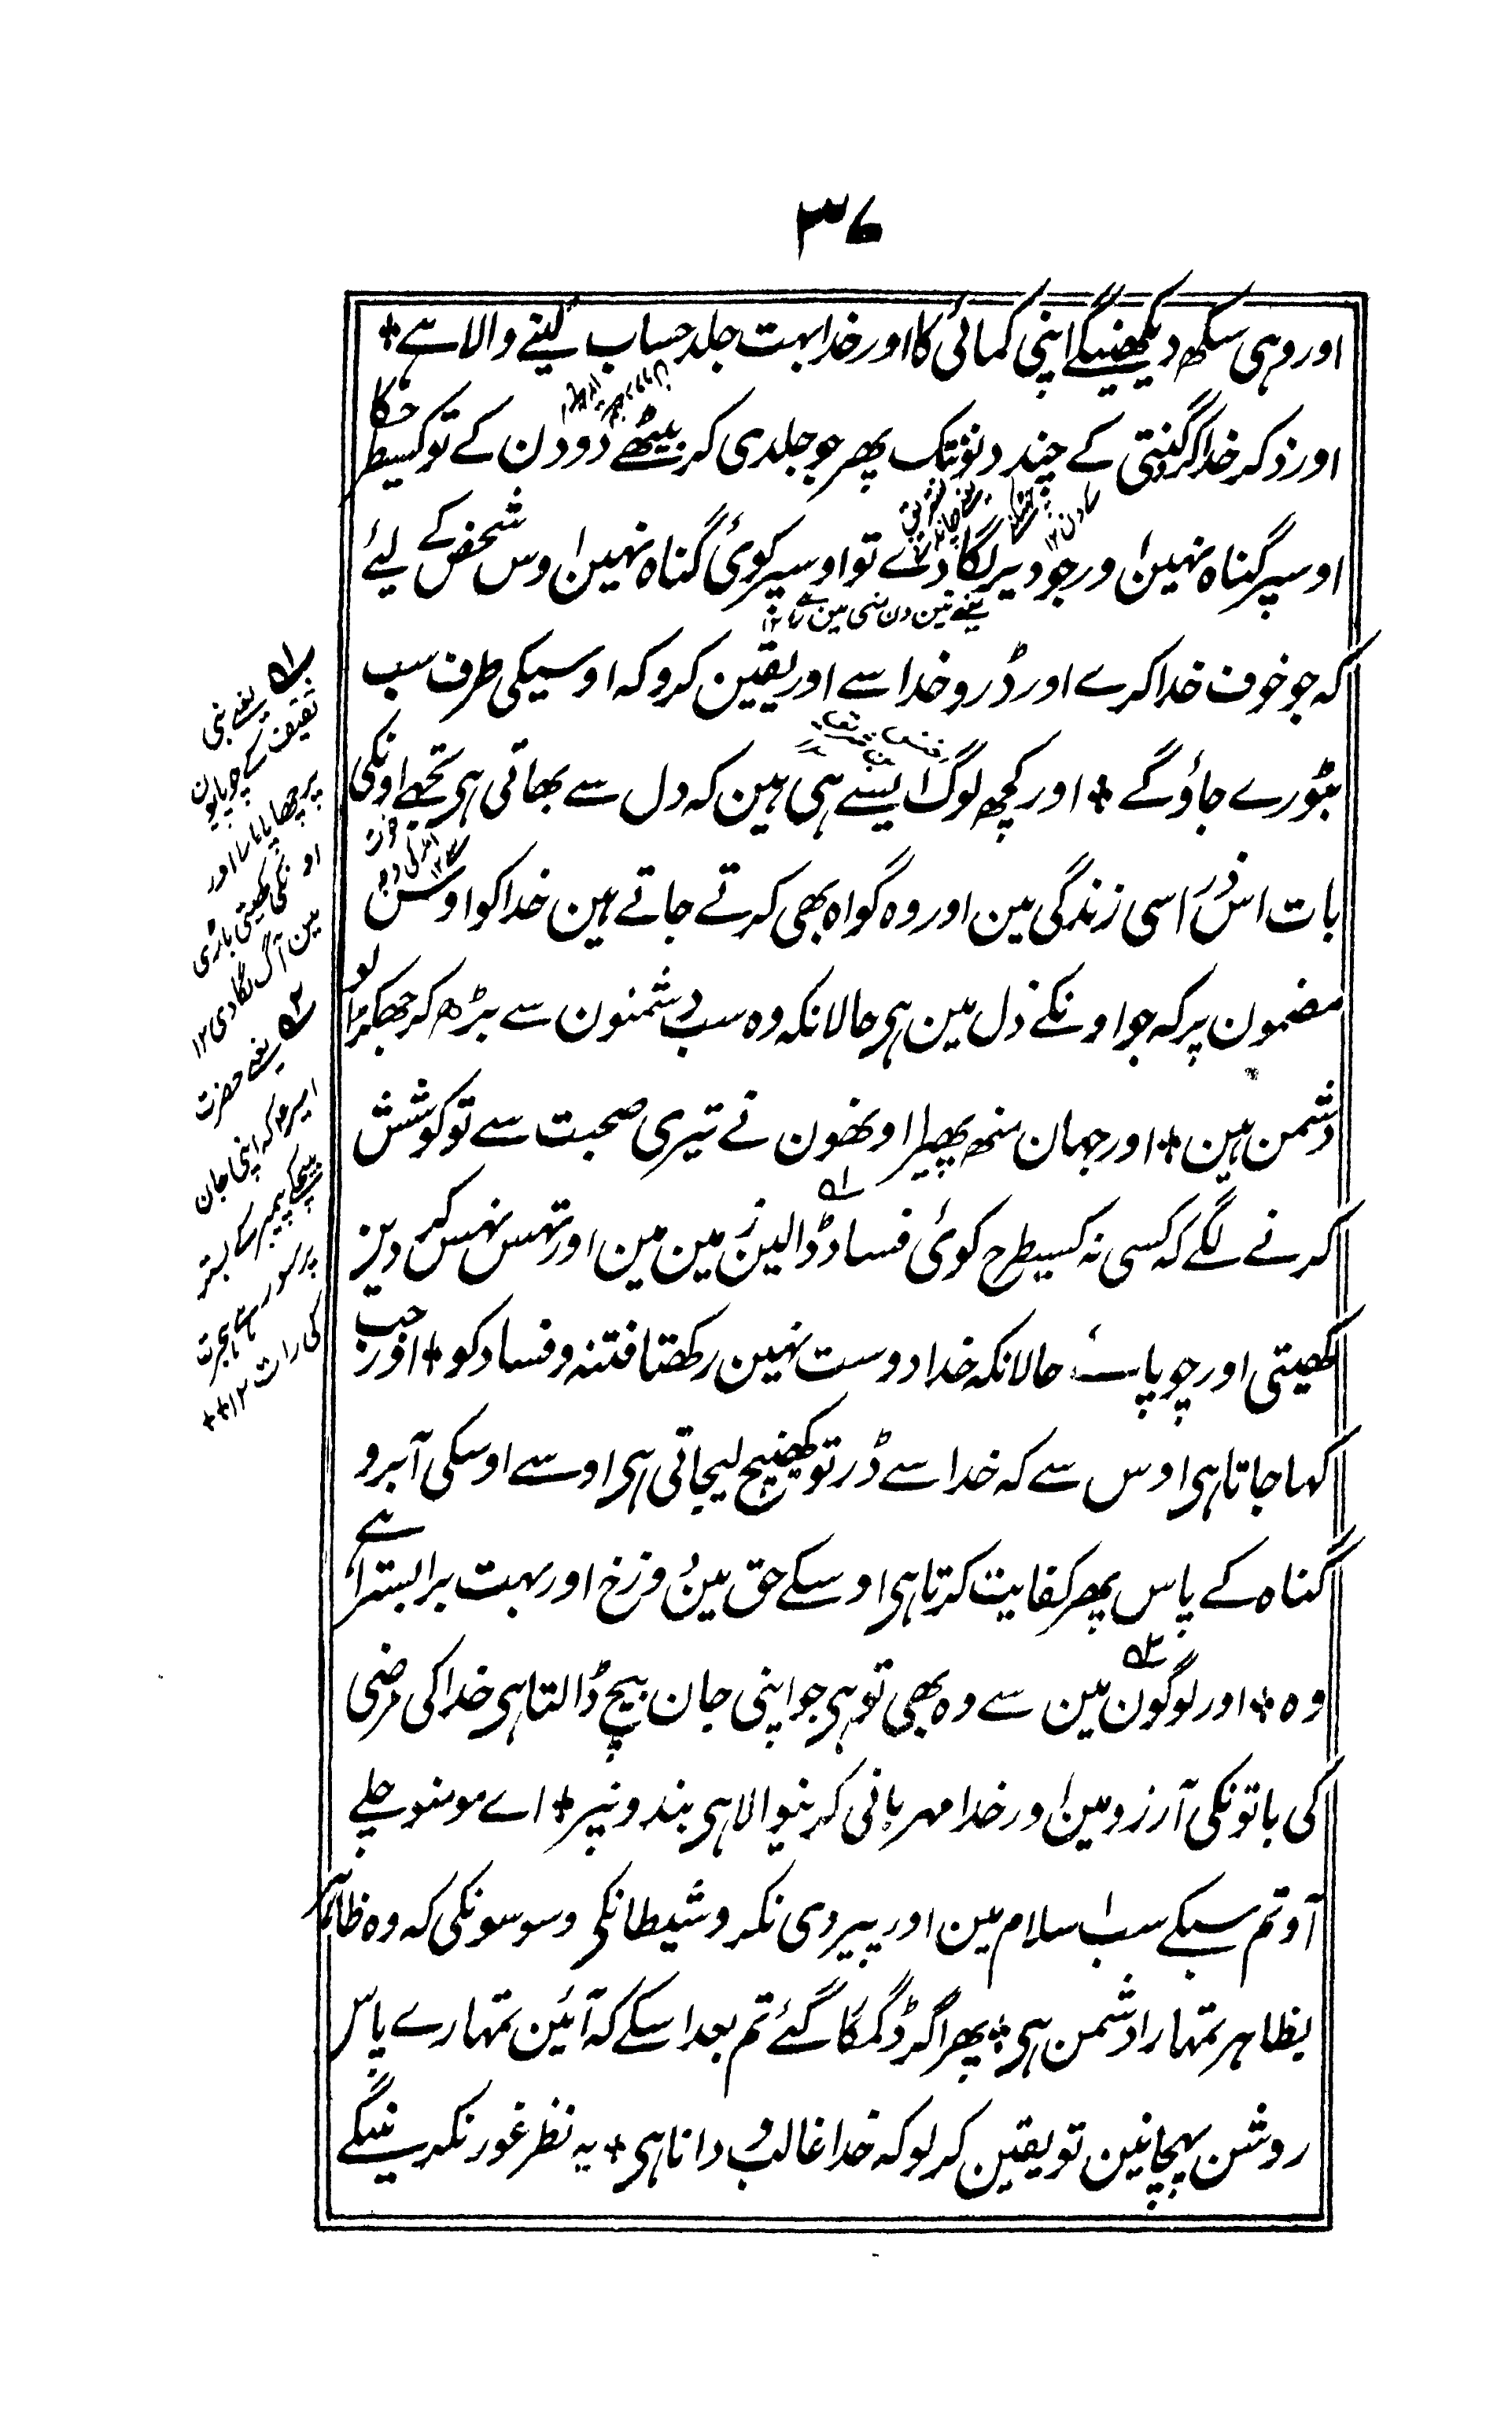 ۳۷
اور وہی سکھ دیکھینگے اپنی کمائی کا اور خدا بہت جلد حساب لینے والا ہے +
اور ذکر خدا کر گنتی کے چند دنوتک پھر جو جلدی کر بیٹھے دو دن کے تو کسیطرحکا
اوسپر گناہ نہین اور جو دیر لگا دے تو اوسپر کوئی گناہ نہین اوس شخص کے لیئے
یعنے تین دن منی مین رہے ۱۲
کہ جو خوف خدا کرے اور ڈرو خدا سے اور یقین کرو کہ اوسیکی طرف سب
بٹورے جاؤگے + اور کچھ لوگ ایسے ہی ہین کہ دل سے بھاتی ہی تجھے اونکی
بات اس ذری اسی زندگی مین اور وہ گواہ بھی کرتے جاتے ہین خدا کو اوس
مضمون پر کہ جو اونکے دل مین ہی حالانکہ وہ سب دشمنون سے بڑھ کر جھکڑالو
دشمن ہین + اور جہان منھ پھیرا اونھون نے تیری صحبت سے تو کوشش
کرنے لگے کہ کسی نہ کسیطرح کوئی فساد ڈالین زمین مین اور تہس نہس کر دین
کھیتی اور چوپائے حالانکہ خدا دوست نہین رکھتا فتنہ و فساد کو + اور جب
کہا جاتا ہی اوس سے کہ خدا سے ڈر تو کھینچ لیجاتی ہی اوسے اوسکی آبرو
گناہ کے پاس پھر کفایت کرتا ہی اوسکے حق مین دوزخ اور بہت برا بسترا ہے
وہ + اور لوگون مین سے وہ بھی تو ہی جو اپنی جان بیچ ڈالتا ہی خدا کی مرضی
کی باتونکی آرزو مین اور خدا مہربانی کرنیوالا ہی بندونپر + اے مومنو چلے
آو تم سبکے سب اسلام مین اور پیروی نکرو شیطانکی وسوسونکی کہ وہ ظاہر
بظاہر تمہارا دشمن ہی + پھر اگر ڈگمگا گئے تم بعد اسکے کہ آئین تمہارے پاس
روشن پہچانین تو یقین کر لو کہ خدا غالب و دانا ہی + یہ نظر غور نکرینگے
۱ یعنے بنی
ثقیف کے چوپایون
پر چھاپا مارا اور
اونکی کھیتی باڑی
مین آگ لگا دی ۱۲
۲ یعنے حضرت
امیر کہ اپنی جان
بیچکے پیمبر کے بستر
پر سو رہے ہجرت
کی رات ۱۲ ++